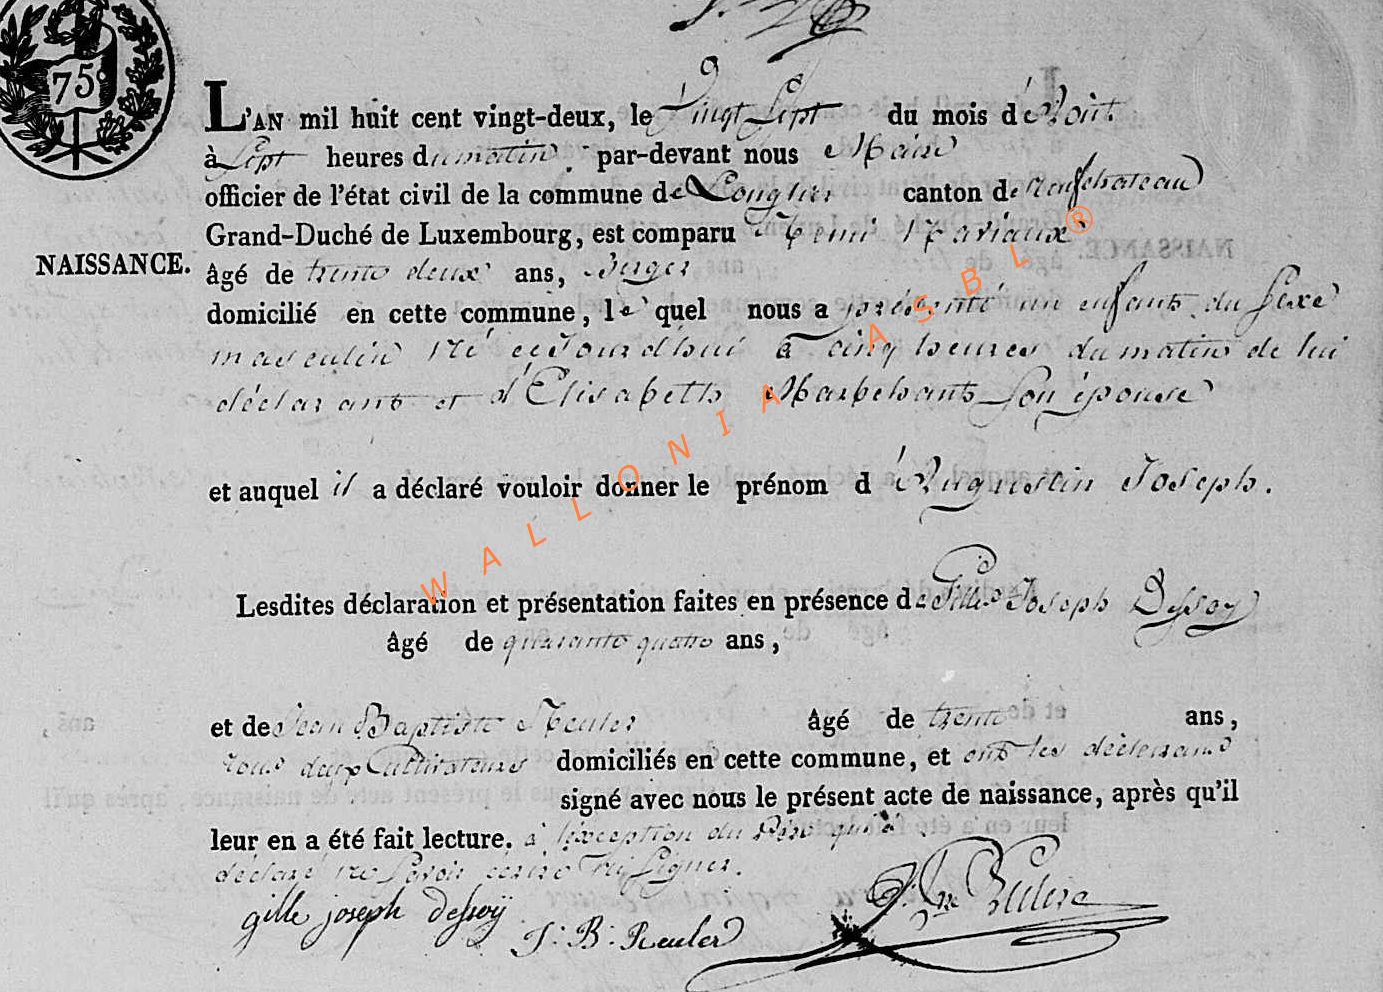 75c
L'AN mil huit cent vingt-deux, le Vingt Sept du mois d'Août
à Sept heures du matin, par-devant nous Maire
officier de l'état civil de la commune de Longlier canton de Neufchateau
Grand-Duché de Luxembourg, est comparu Remi Mariaux
NAISSANCE. âgé de trente deux ans, Berger
domicilié en cette commune, le quel nous a présenté un enfant du Sexe
masculin né cejourdhui à cinq heures du matin de lui
déclarant et d'Elisabeth Marechant Son épouse
et auquel il a déclaré vouloir donner le prénom d'Augustin Joseph.
Lesdites déclaration et présentation faites en présence de Gille Joseph Dessoy
âgé de quarante quatre ans,
et de Jean Baptiste Reuler âgé de trente ans,
tous deux Cultivateurs domiciliés en cette commune, et ont les déclarans
signé avec nous le présent acte de naissance, après qu'il
leur en a été fait lecture. à l'exception du Père qui a
déclaré ne Savoir écrire ni Signer.
gille joseph dessoÿ
J. B. Reuler
WALLONIA ASBL ®